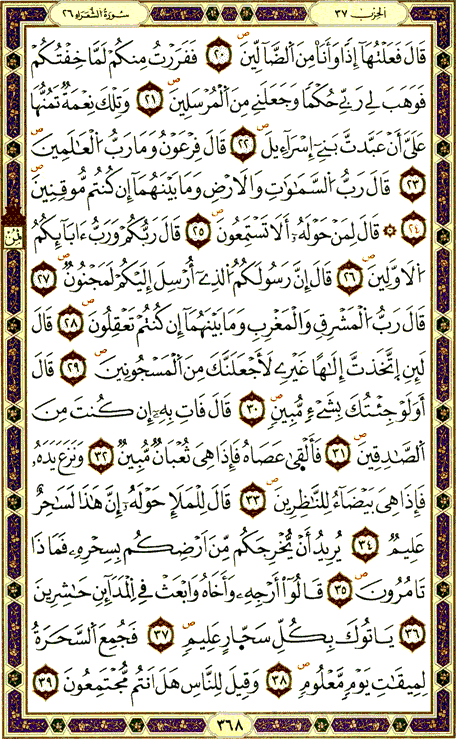 الحزب ٣٧
سورة الشعراء ٢٦
قَالَ فَعَلْتُهَآ إِذاً وَأَنَا مِنَ اَ۬لضَّآلِّينَ ٢٠ فَفَرَرْتُ مِنكُمْ لَمَّا خِفْتُكُمْ
فَوَهَبَ لِے رَبِّے حُكْماً وَجَعَلَنِے مِنَ اَ۬لْمُرْسَلِينَ ٢١ وَتِلْكَ نِعْمَةٌ تَمُنُّهَا
عَلَيَّ أَنْ عَبَّدتَّ بَنِےٓ إِسْرَآءِيلَ ٢٢ قَالَ فِرْعَوْنُ وَمَا رَبُّ اُ۬لْعَٰلَمِينَ
٢٣ قَالَ رَبُّ اُ۬لسَّمَٰوَٰتِ وَالَارْضِ وَمَا بَيْنَهُمَآ إِن كُنتُم مُّوقِنِينَ
٢٤ ۞ قَالَ لِمَنْ حَوْلَهُۥٓ أَلَا تَسْتَمِعُونَ ٢٥ قَالَ رَبُّكُمْ وَرَبُّ ءَابَآئِكُمُ
ثمن
اُ۬لَاوَّلِينَ ٢٦ قَالَ إِنَّ رَسُولَكُمُ اُ۬لذِےٓ أُرْسِلَ إِلَيْكُمْ لَمَجْنُونٌ ٢٧
قَالَ رَبُّ اُ۬لْمَشْرِقِ وَالْمَغْرِبِ وَمَا بَيْنَهُمَآ إِن كُنتُمْ تَعْقِلُونَ ٢٨ قَالَ
لَئِنِ اِ۪تَّخَذتَّ إِلَٰهاً غَيْرِے لَأَجْعَلَنَّكَ مِنَ اَ۬لْمَسْجُونِينَ ٢٩ قَالَ
أَوَلَوْ جِئْتُكَ بِشَےْءٖ مُّبِينٖ ٣٠ قَالَ فَاتِ بِهِۦٓ إِن كُنتَ مِنَ
اَ۬لصَّٰدِقِينَ ٣١ فَأَلْقَىٰ عَصَاهُ فَإِذَا هِيَ ثُعْبَانٌ مُّبِينٌ ٣٢ وَنَزَعَ يَدَهُۥ
فَإِذَا هِيَ بَيْضَآءُ لِلنَّٰظِرِينَ ٣٣ قَالَ لِلْمَلَإِ حَوْلَهُۥٓ إِنَّ هَٰذَا لَسَٰحِرٌ
عَلِيمٌ ٣٤ يُرِيدُ أَنْ يُّخْرِجَكُم مِّنَ اَرْضِكُم بِسِحْرِهِۦ فَمَاذَا
تَامُرُونَ ٣٥ قَالُوٓاْ أَرْجِهِۦ وَأَخَاهُ وَابْعَثْ فِے اِ۬لْمَدَآئِنِ حَٰشِرِينَ
٣٦ يَاتُوكَ بِكُلِّ سَحّ۪ارٍ عَلِيمٖ ٣٧ فَجُمِعَ اَ۬لسَّحَرَةُ
لِمِيقَٰتِ يَوْمٖ مَّعْلُومٖ ٣٨ وَقِيلَ لِلنَّاسِ هَلَ اَنتُم مُّجْتَمِعُونَ ٣٩
٣٦٨